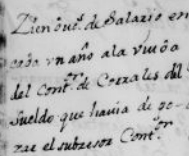 Zien duc.s de Salario en
cada vn año a la viuda
del Cont.or de Corrales del
sueldo que hauia de go-
zar el subzesor Cont.or